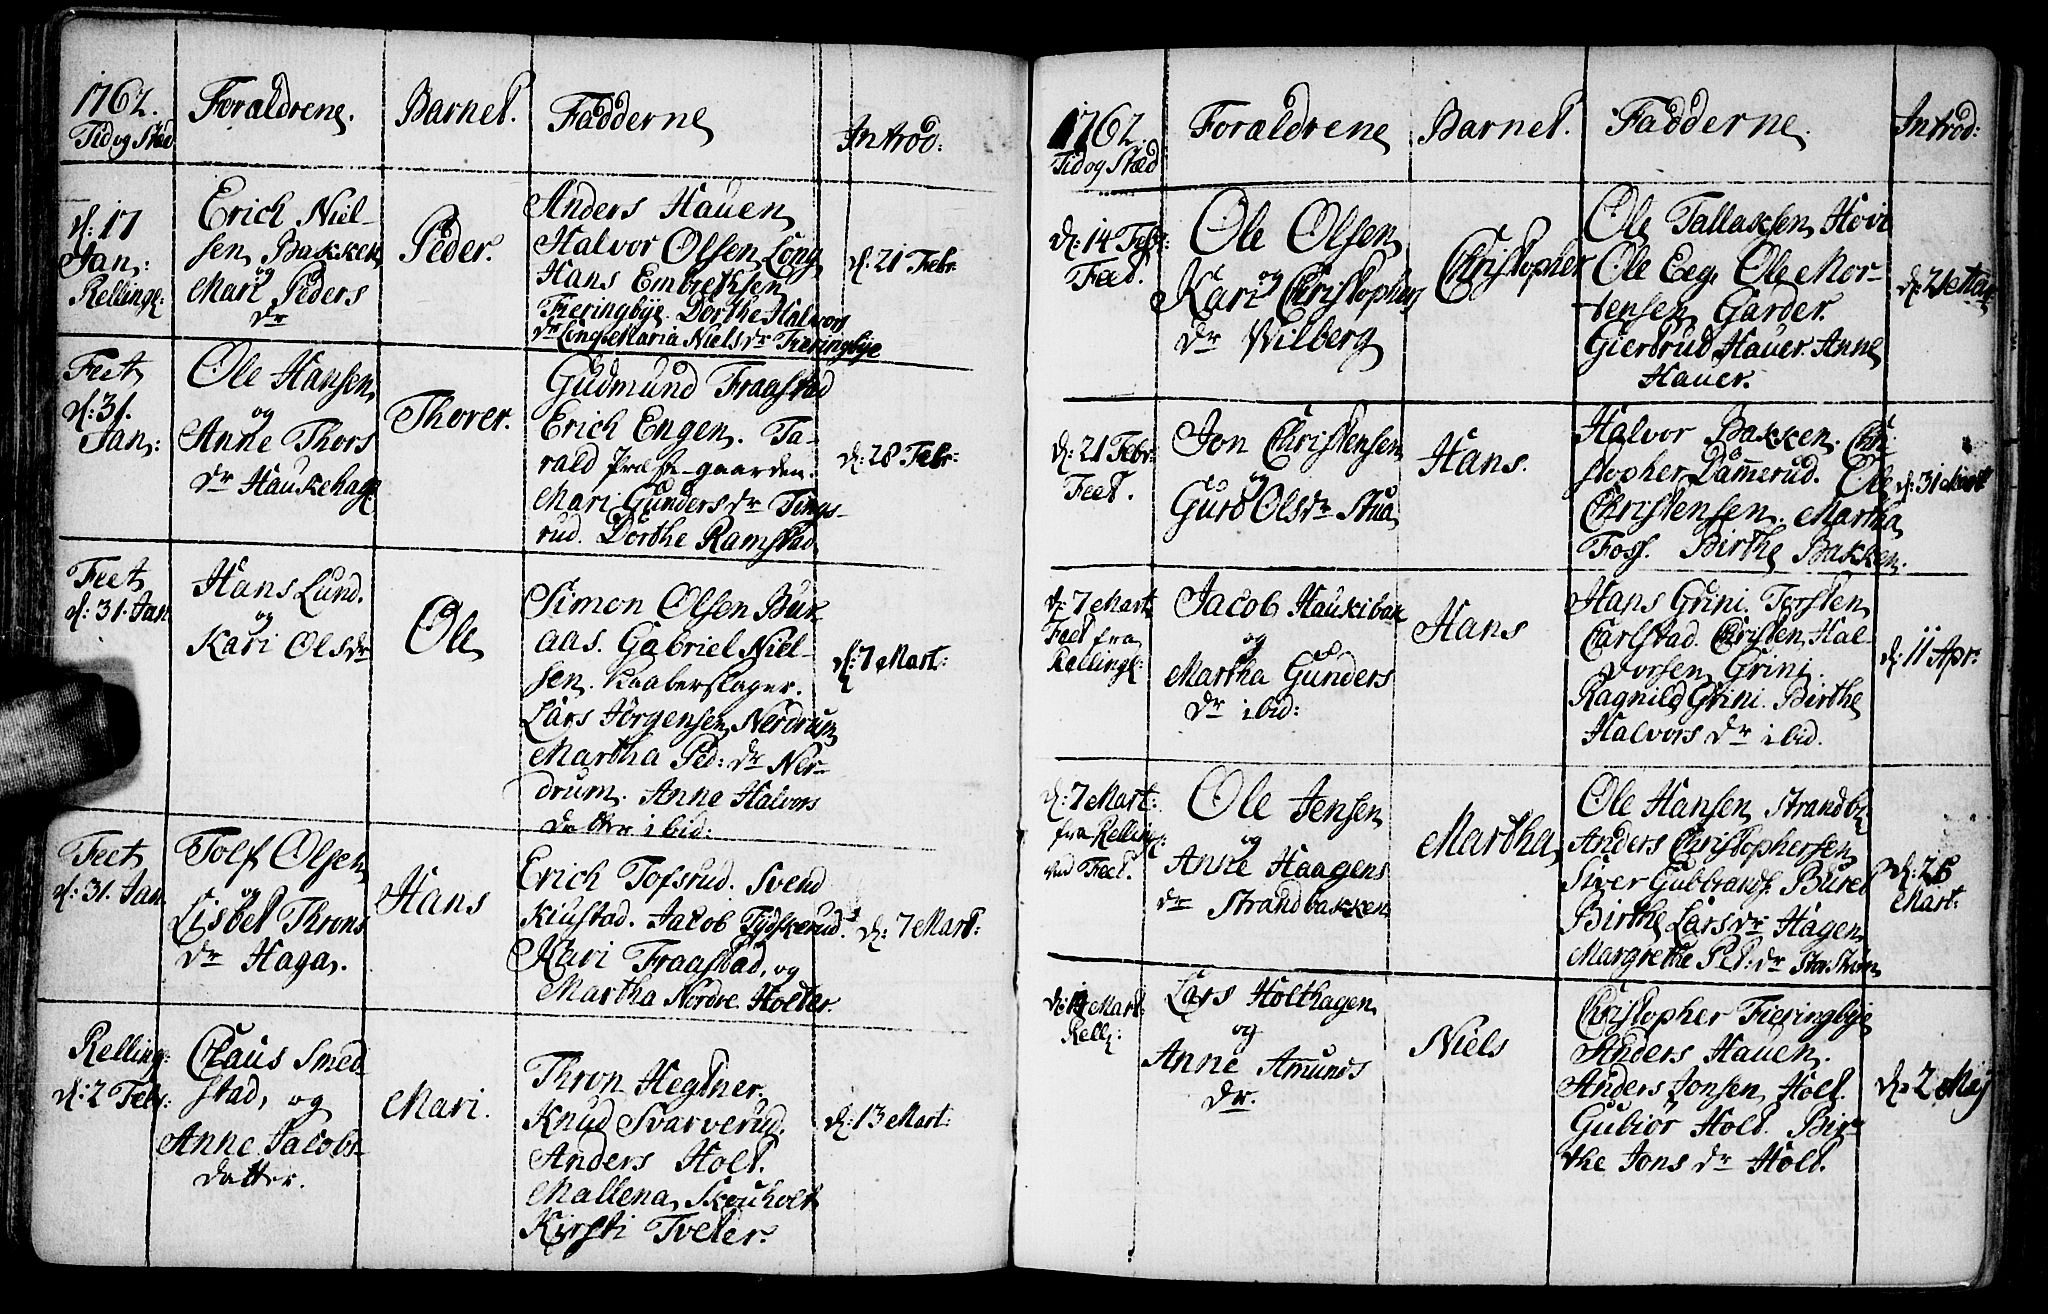 1762.
Tid og Stæd
Forældrene.
Barnet.
Fadderne
Introd:
d: 17
Jan:
Relling:
Erich Niel-
sen Bakken
og
Mari Peders
dr
Peder.
Anders Hauen
Halvor Olsen Long
Hans Embretsen
Fieringbye. Dorthe Halvors
dr Long Maria Niels dr Fieringbye
d: 21 Febr.
Feet
d: 31.
Jan:
Ole Hansen
og
Anne Thors
dr Haukehage
Thorer.
Gudmund Fraastad
Erich Engen. Ta-
rald Præste-gaarden.
Mari Gunders dr Tings-
rud. Dorthe Ramstad
d: 28 Febr:
Feet
d: 31. Jan
Hans Lund.
og
Kari Olsdr
Ole
Simon Olsen Bur-
aas. Gabriel Niel-
sen. Kaaberslager.
Lars Jørgensen Nerdrum
Martha Ped: dr Ner-
drum. Anne Halvors
datter ibid:
d: 7 Mart:
Feet
d: 31. Jan
Tolf Olsen
og
Lisbet Throns
dr Haga.
Hans
Erich Tofsrud. Svend
Kiustad. Jacob Tydskerud.
Kari Fraastad, og
Martha Nordre Holter.
d: 7 Mart:
Relling:
d: 2 Febr:
Claus Smed
stad, og
Anne Jacobs-
datter.
Mari.
Thron Hegtner.
Knud Svarverud.
Anders Holt.
Mallena Skouholt
Kirsti Tveter.
d: 13 Mart:
1762.
Tid og Stæd
Forældrene
Barnet.
Fadderne.
Introd:
d: 14 Febr:
Feet.
Ole Olsen
og
Kari Christophers
dr Wilberg
Christopher
Ole Tallaksen Hovi
Ole Eeg. Ole Mor-
tensen Garder.
Giertrud Hauer. Anne
Hauer.
d: 21 Mart
d: 21 Febr:
Feet.
Jon Christensen
og
Guro Olsdr Stua
Hans.
Halvor Bakken. Chri-
stopher Dammerud. Ole
Christensen. Martha
Foss. Birthe Bakken.
d: 31 Mart
d: 7 Mart
Feet fra
Relling:
Jacob Haukibak
og
Martha Gunders
dr ibid:
Hans
Hans Grini. Torsten
Carlstad. Christen Hal-
vorsen Grini.
Ragnild Grini. Birthe
Halvors dr ibid.
d: 11 Apr:
d: 7 Mart:
fra Relling:
ved Feet.
Ole Jensen
og
Anne Haagens
dr Strandbakken
Martha
Ole Hansen Strandb:
Anders Christophersen
Siver Gudbrands. Buret
Birthe Lars dr Hagen
Margrethe Pet: dr
Mart:
Mart
Rell:
Lars Holthagen
og
Anne Amunds
dr.
Niels
Christopher Fieringbye
Anders Hauen.
Anders Jonsen Holt.
Gubiør Holt. Bir-
the Jons dr Holt.
d: 2 Maj